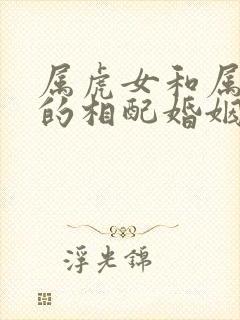 属虎女和属
的相配婚姻
浮光锦